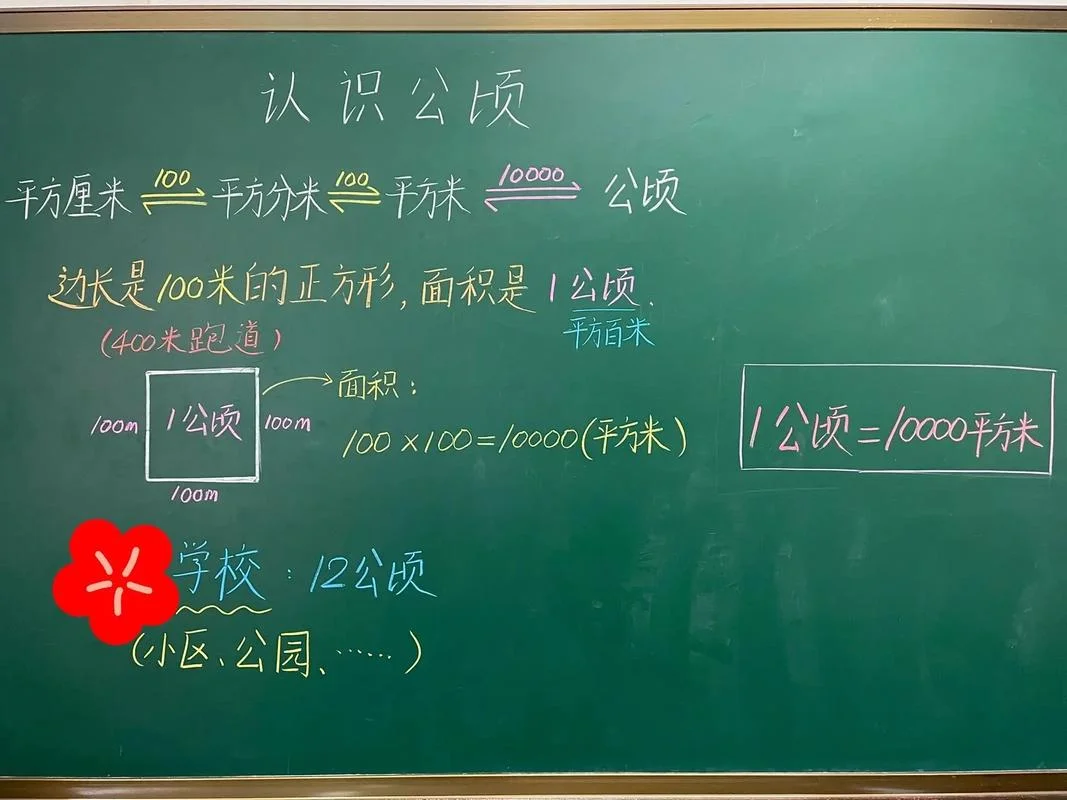 认识公顷
100 100 10000
平方厘米 ⇌ 平方分米 ⇌ 平方米 ⇌ 公顷
边长是100米的正方形,面积是1公顷.
平方百米
(400米跑道)
面积:
100m 1公顷 100m
100×100=10000(平方米)
1公顷=10000平方米
100m
学校:12公顷
(小区、公园、……)